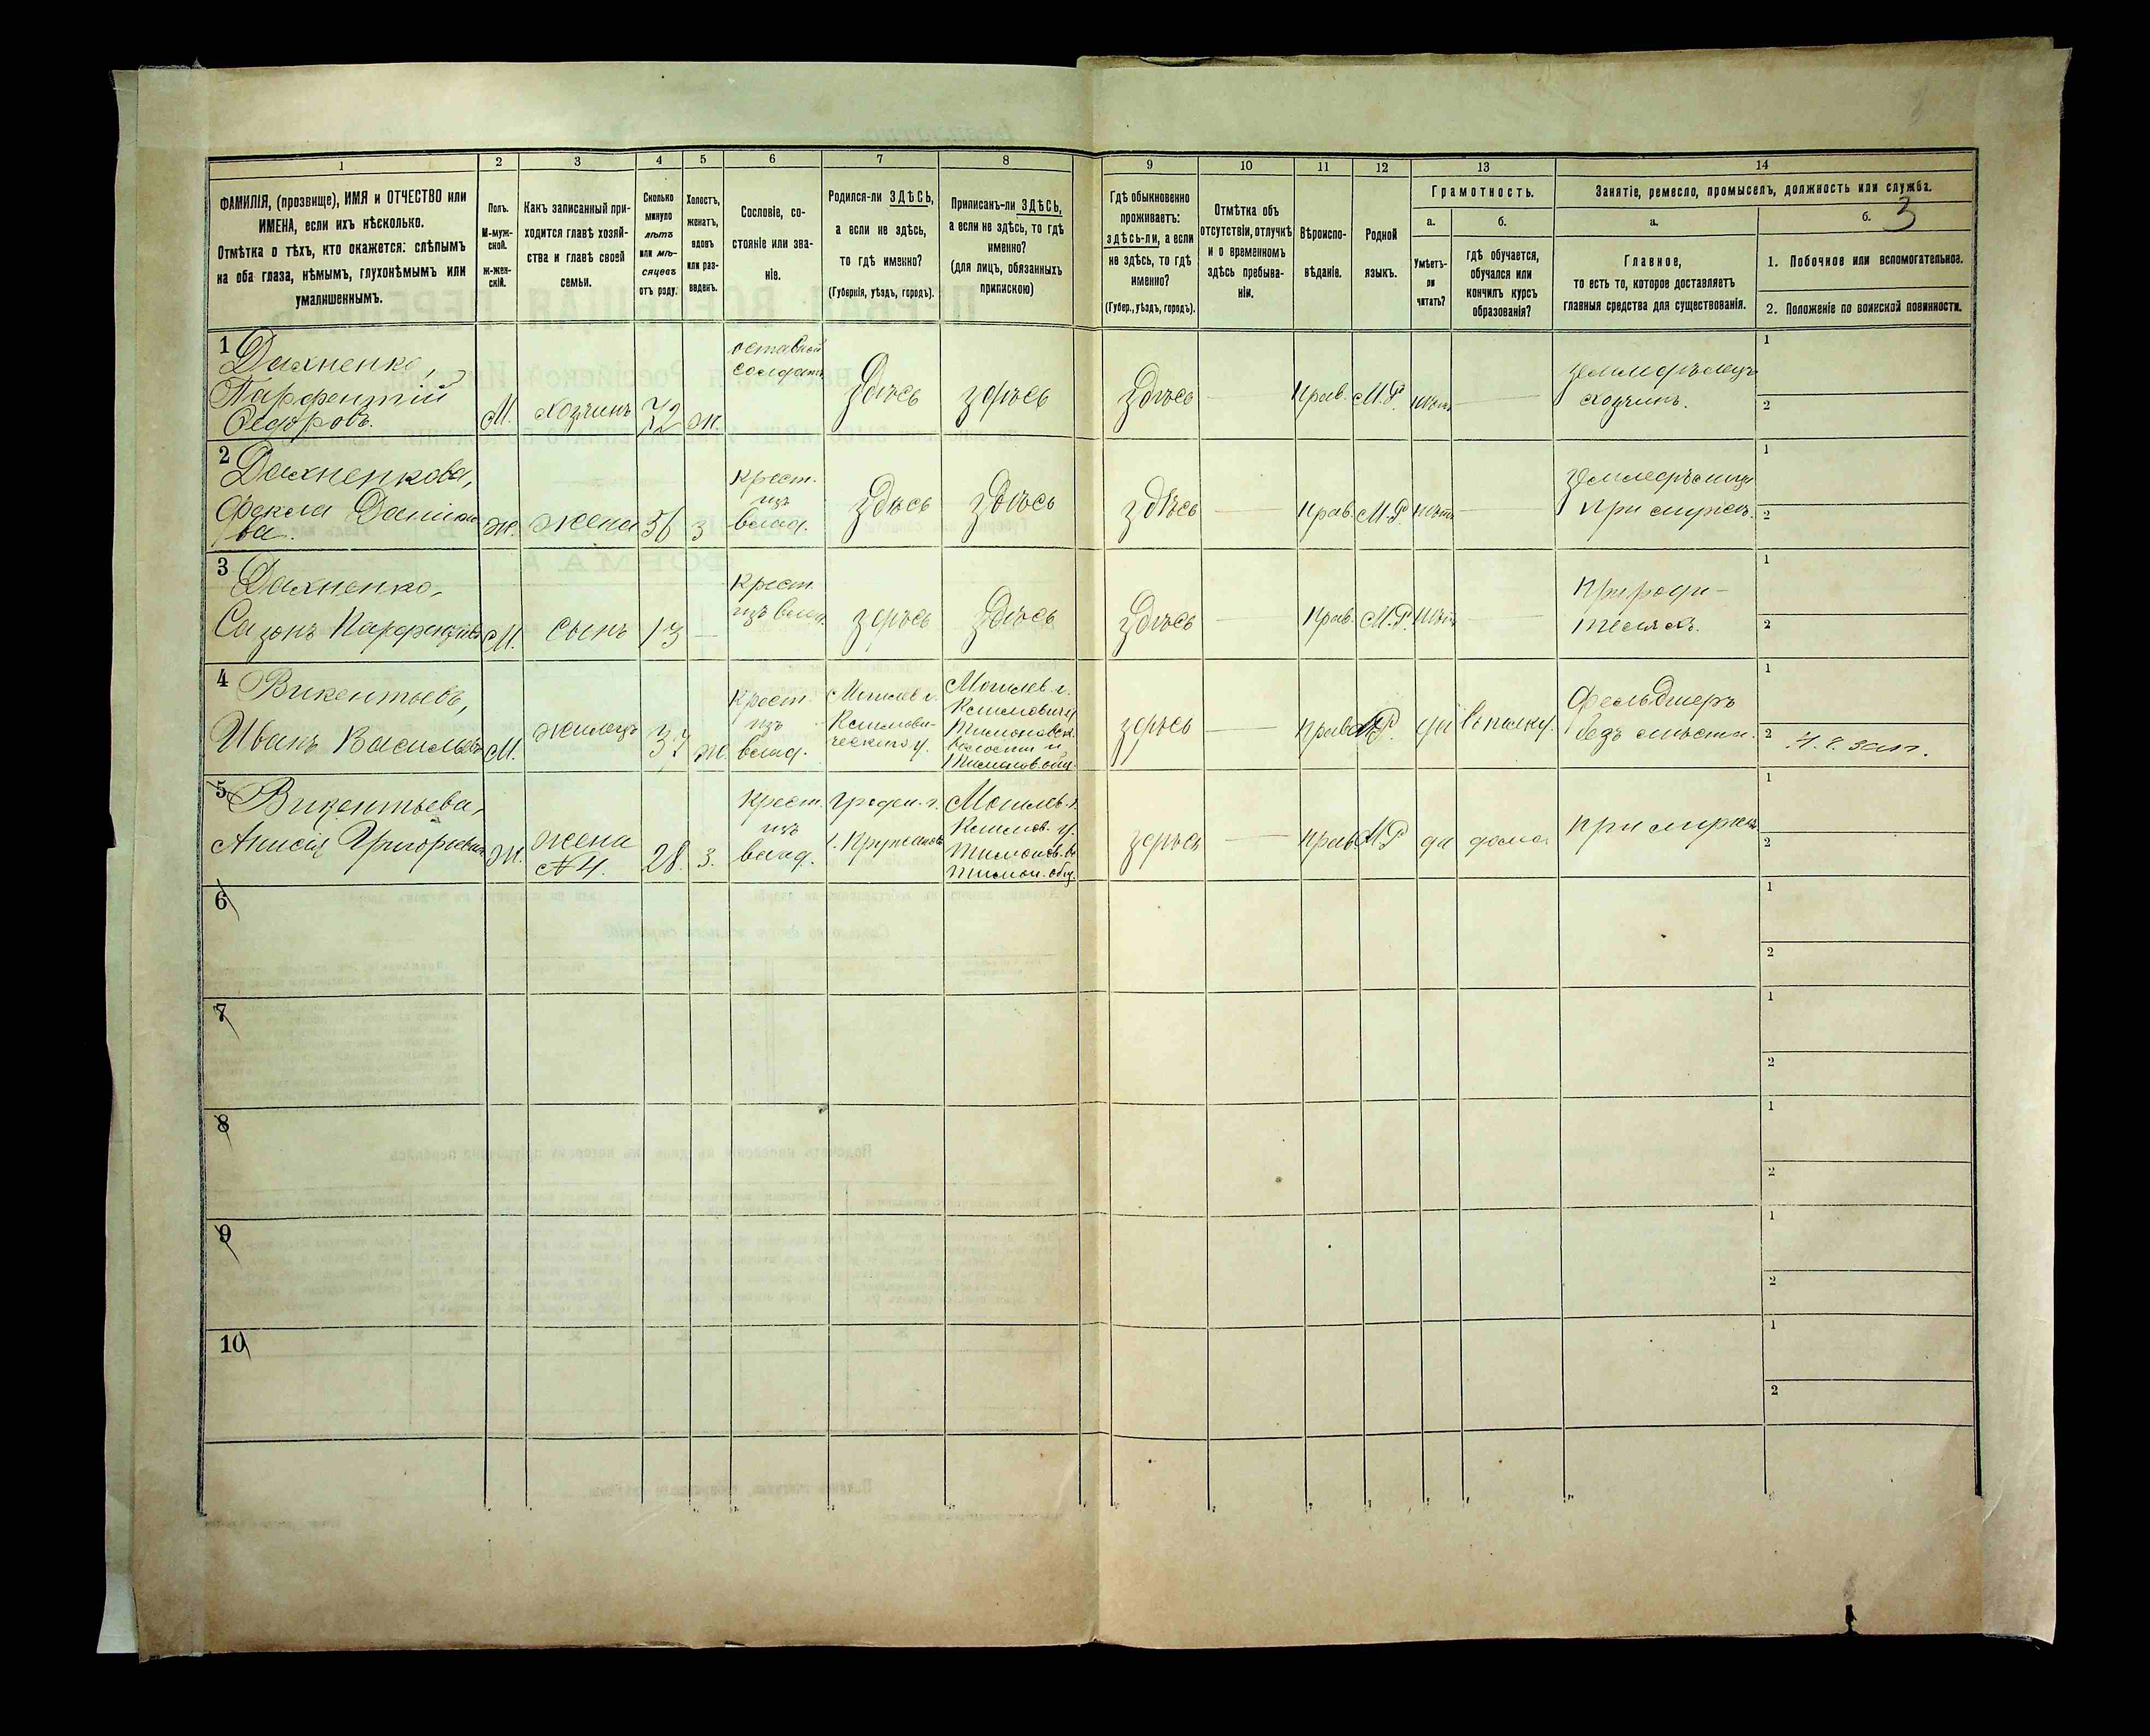 3
1 2 3 4 5 6 7 8 9 10 11 12 13 14
ФАМИЛІЯ, (прозвище), ИМЯ и ОТЧЕСТВО или
ИМЕНА, если ихъ нѣсколько.
Отмѣтка о тѣхъ, кто окажется: слѣпымъ
на оба глаза, нѣмымъ, глухонѣмымъ или
умалишеннымъ.
Полъ.
М-муж-
ской.
ж-жен-
скій.
Какъ записанный при-
ходится главѣ хозяй-
ства и главѣ своей
семьи.
Сколько
минуло
лѣтъ
или мѣ-
сяцевъ
отъ роду.
Холостъ,
женатъ,
вдовъ
или раз-
веденъ.
Сословіе, со-
стояніе или зва-
ніе.
Родился-ли ЗДѢСЬ,
а если не здѣсь,
то гдѣ именно?
(Губернія, уѣздъ, городъ).
Приписанъ-ли ЗДѢСЬ,
а если не здѣсь, то гдѣ
именно?
(для лицъ, обязанныхъ
припискою)
Гдѣ обыкновенно
проживаетъ:
здѣсь-ли, а если
не здѣсь, то гдѣ
именно?
(Губер., уѣздъ, городъ).
Отмѣтка объ
отсутствіи, отлучкѣ
и о временномъ
здѣсь пребыва-
ніи.
Вѣроиспо-
вѣданіе.
Родной
языкъ.
Грамотность.
а.
Умѣетъ-
ли
читать?
б.
гдѣ обучается,
обучался или
кончилъ курсъ
образованія?
Занятіе, ремесло, промыселъ, должность или служба.
а.
Главное,
то есть то, которое доставляетъ
главныя средства для существованія.
б.
1. Побочное или вспомогательное.
2. Положеніе по воинской повинности.
1
Дахненко,
Парфентій
Федоровъ.
М. хозяинъ 72 ж.
отставной
солдатъ
Здѣсь здѣсь Здѣсь — прав. М.Р. нѣтъ —
земледѣлецъ
хозяинъ.
1
2
2
Дахненкова,
Фекла Данило
ва.
ж. жена 56 з
крест.
изъ
влад.
здѣсь здѣсь здѣсь — прав. М.Р. нѣтъ —
при мужѣ.
1
2
3
Дахненко,
Сазонъ Парфентіевъ
М. сынъ 13 —
крест.
изъ влад.
здѣсь здѣсь здѣсь — прав. М.Р. нѣтъ —
При роди-
теляхъ.
1
2
4
Викентьевъ,
Иванъ Васильевъ
М. жилецъ 37 ж.
крест.
изъ
влад.
Могилев. г.
Климови-
ческаго у.
Могилев. г.
Климовичу
Тимоновск.
волости и
Тимонов. общ.
здѣсь — прав. М.Р. да въ полку.
Фельдшеръ
безъ мѣста.
1
2 Ч. 8. зап.
5
Викентьева,
Анисія Григорьевна
ж.
жена
№ 4.
28. з.
крест.
изъ
влад.
Гроден. г.
Могилев. г.
Климов. у.
Тимонов. в.
Тимон. общ.
здѣсь — прав. М.Р да дома при мужѣ
1
2
6
1
2
7
1
2
8
1
2
9
1
2
10
1
2